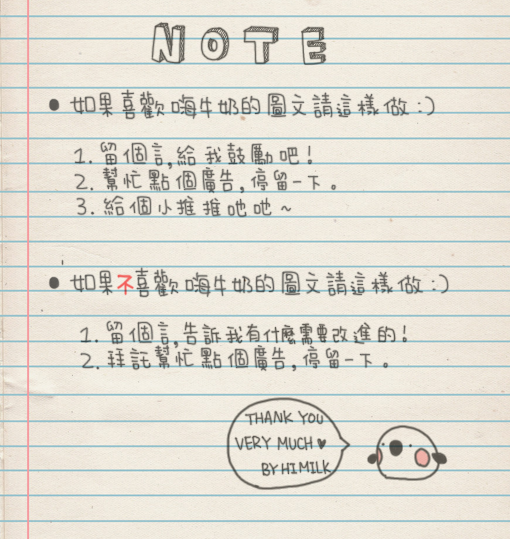 NOTE
● 如果喜歡嗨牛奶的圖文請這樣做:)
1. 留個言,給我鼓勵吧!
2. 幫忙點個廣告,停留一下。
3. 給個小推推吔吔~
● 如果不喜歡嗨牛奶的圖文請這樣做:)
1. 留個言,告訴我有什麼需要改進的!
2. 拜託幫忙點個廣告,停留一下。
THANK YOU
VERY MUCH ♥
BY HIMILK